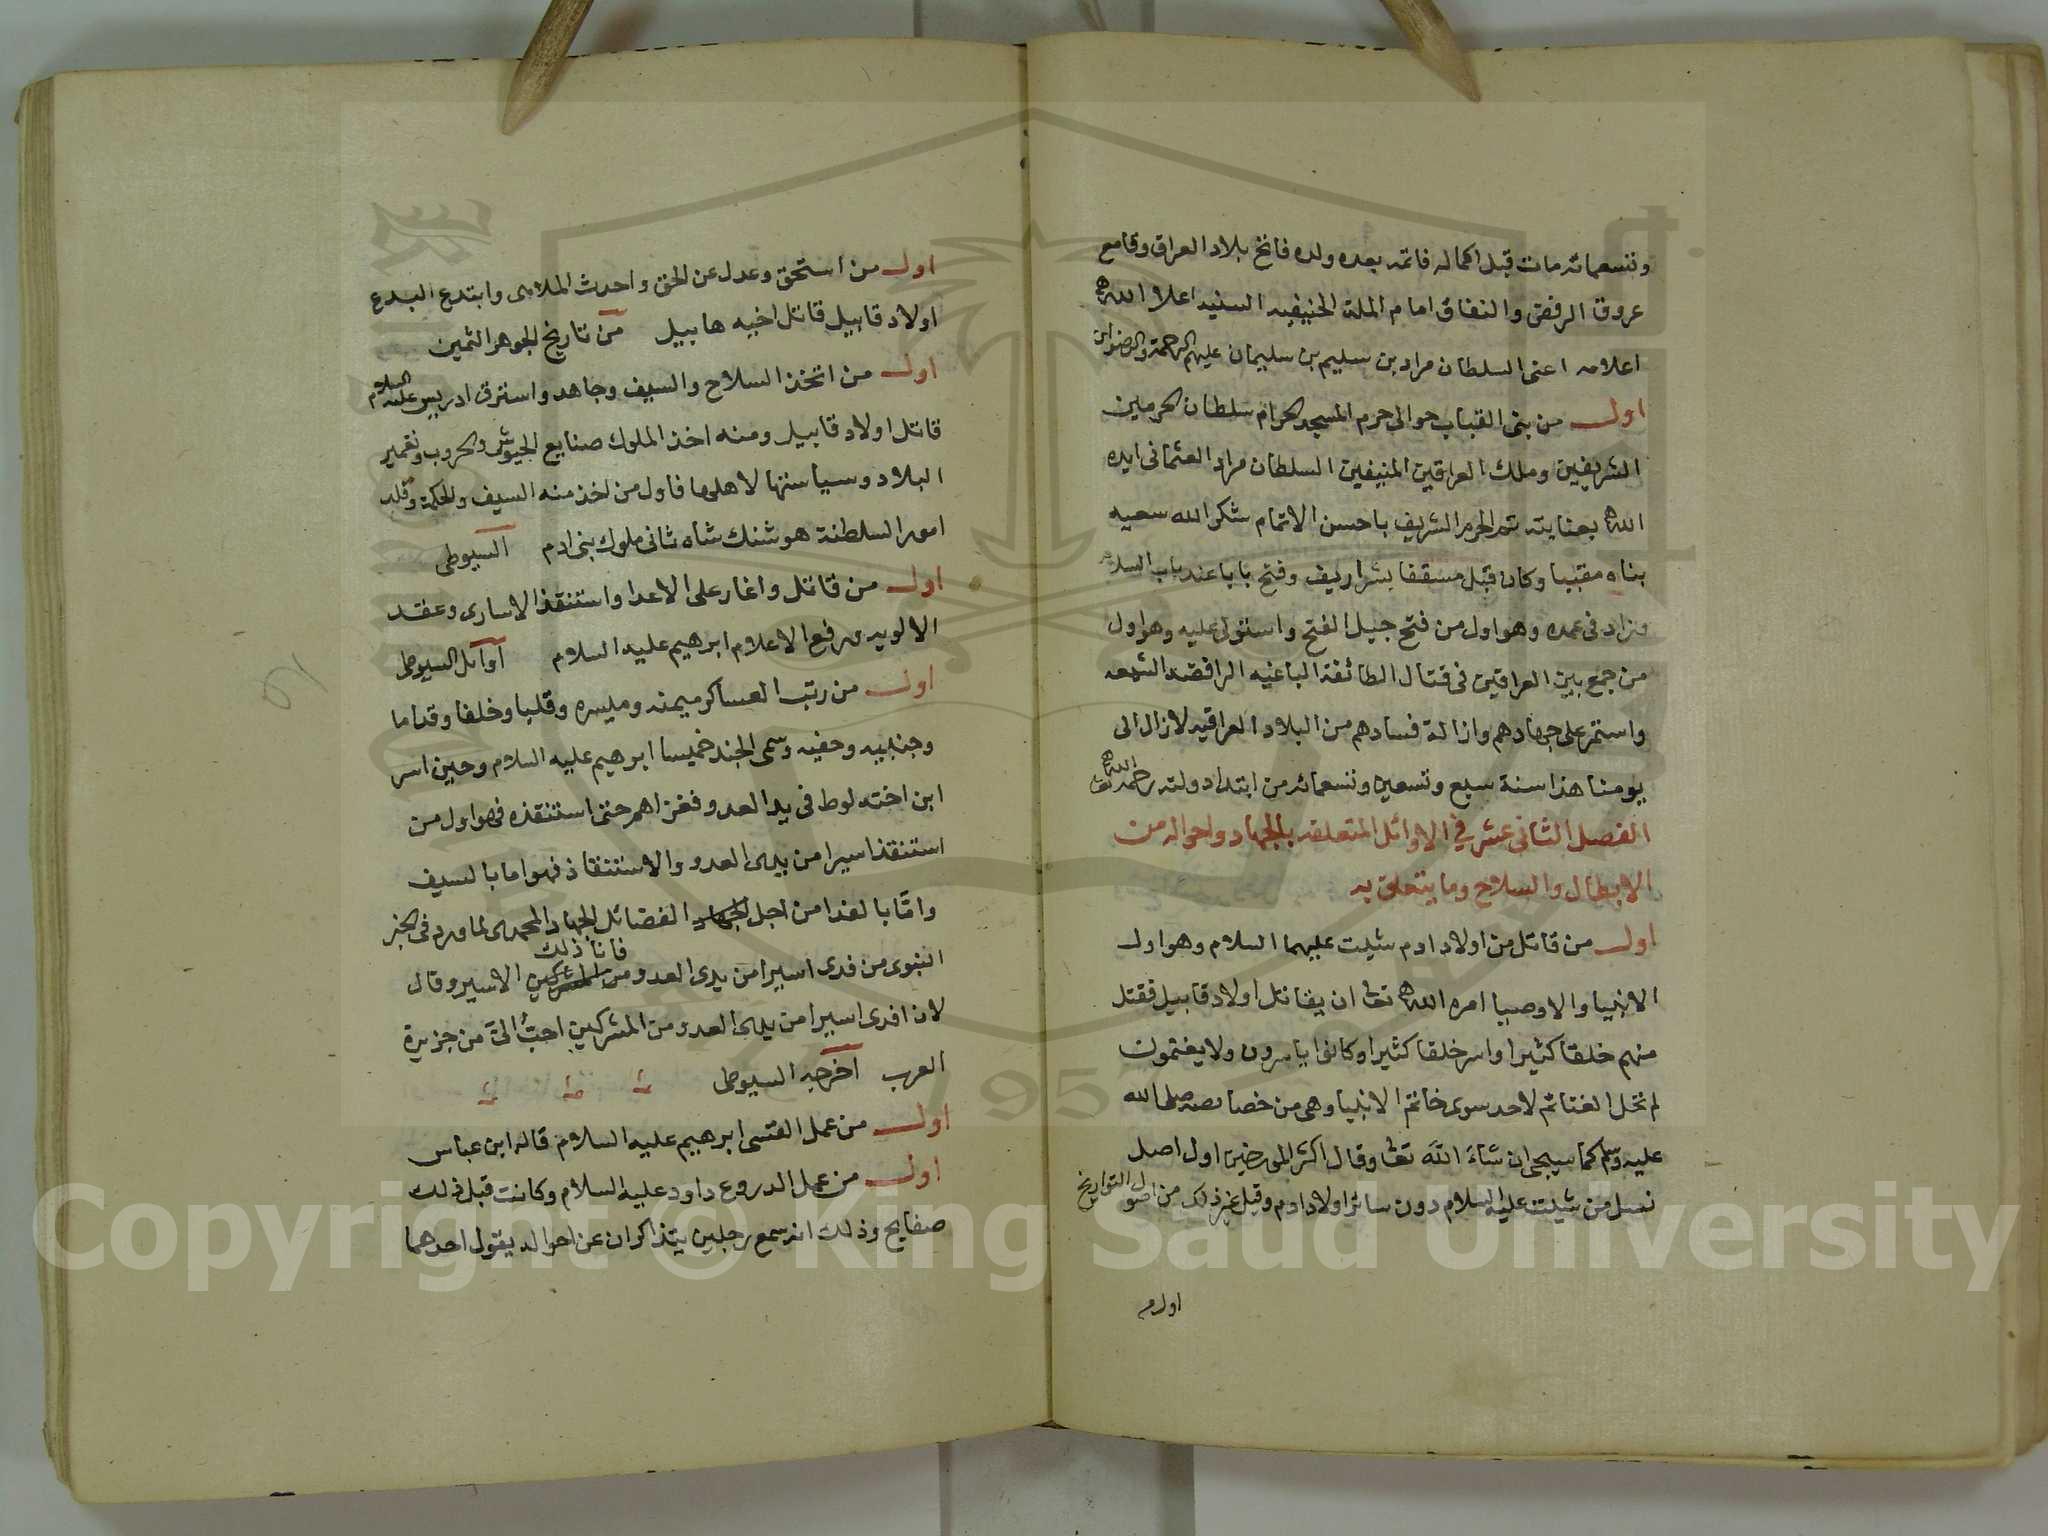 وتسعمائه مات قبل اكماله فاتمه بعده ولده فاتح بلاد العراق وقامع
عروق الرفض والنفاق امام الملة الحنيفيه السنيه اعلا الله
اعلامه اعنى السلطان مراد بن سليم بن سليمان عليهم الرحمة والرضوان
اول من بنى القباب حوالى حرم المسجد الحرام سلطان الحرمين
الشريفين وملك العراقين المنيفين السلطان مراد العثمانى ايده
الله بعنايته تم الحرم الشريف باحسن الاتمام شكر الله سعيه
بناه مقببا وكان قبل مسقفا بشراريف وفتح بابا عند باب السلام
وزاد فى عمده وهو اول من فتح جبل الفتح واستولى عليه وهو اول
من جمع بين العراقين فى قتال الطائفة الباغيه الرافضه
واستمر على جهادهم وازالة فسادهم من البلاد العراقيه لازال الى
يومنا هذا سنة سبع وتسعين وتسعمائه من ابتداء دولته رحمه الله تعا
الفصل الثانى عشر في الاوائل المتعلقه بالجهاد واحواله من
الابطال والسلاح وما يتعلق به
اول من قاتل من اولاد ادم شيت عليهما السلام وهو اول
الانبيا والاوصيا امره الله تعا ان يقاتل اولاد قابيل فقتل
منهم خلقا كثيرا واسر خلقا كثيرا وكانوا ياسرون ولا يغنمون
لم تحل الغنائم لاحد سوى خاتم الانبيا وهى من خصائصه صلى الله
عليه وسلم كما سيجى ان شاء الله تعا وقال اكثر المورخين اول اصل
نسل من شيت عليه السلام دون سائر اولاد ادم وقيل غير ذلك من اصول التواريخ
اول م
اول من استحق وعدل عن الحق واحدث الملاهى وابتدع البدع
اولاد قابيل قاتل اخيه هابيل من تاريخ الجوهر الثمين
اول من اتخذ السلاح والسيف وجاهد واسترق ادريس عليه السلام
قاتل اولاد قابيل ومنه اخذ الملوك صنايع الجيوش والحروب وتعمير
البلاد وسياستها لاهلها فاول من اخذ منه السيف والحكمة وقلد
امور السلطنة هوشنك شاه ثانى ملوك بنى ادم السيوطى
اول من قاتل واغار على الاعدا واستنقذ الاسارى وعقد
الالويه ورفع الاعلام ابرهيم عليه السلام اوائل السيوطى
اول من رتب العساكر ميمنه وميسره وقلبا وخلفا وقداما
وجنبيه وحفيه وسمى الجند خميسا ابرهيم عليه السلام وحين اسر
ابن اخته لوط فى يد العدو فغزاهم حتى استنقذه فهو اول من
استنقذ اسيرا من يدى العدو والاستنقاذ فهو اما بالسيف
واما بالفدا من اجل الفضائل الجهاد المحمدى لما ورد فى الخبر
فانا ذلك
النبوى من فدى اسيرا من يدى العدو من المشركين الاسير وقال
لان افدى اسيرا من يدى العدو من المشركين احب الى من جزيرة
العرب اخرجه السيوطى
اول من عمل القسى ابرهيم عليه السلام قاله ابن عباس
اول من عمل الدروع داود عليه السلام وكانت قبل ذلك
صفايح وذلك انه سمع رجلين يتذاكران عن احواله يقول احدهما
Copyright © King Saud University